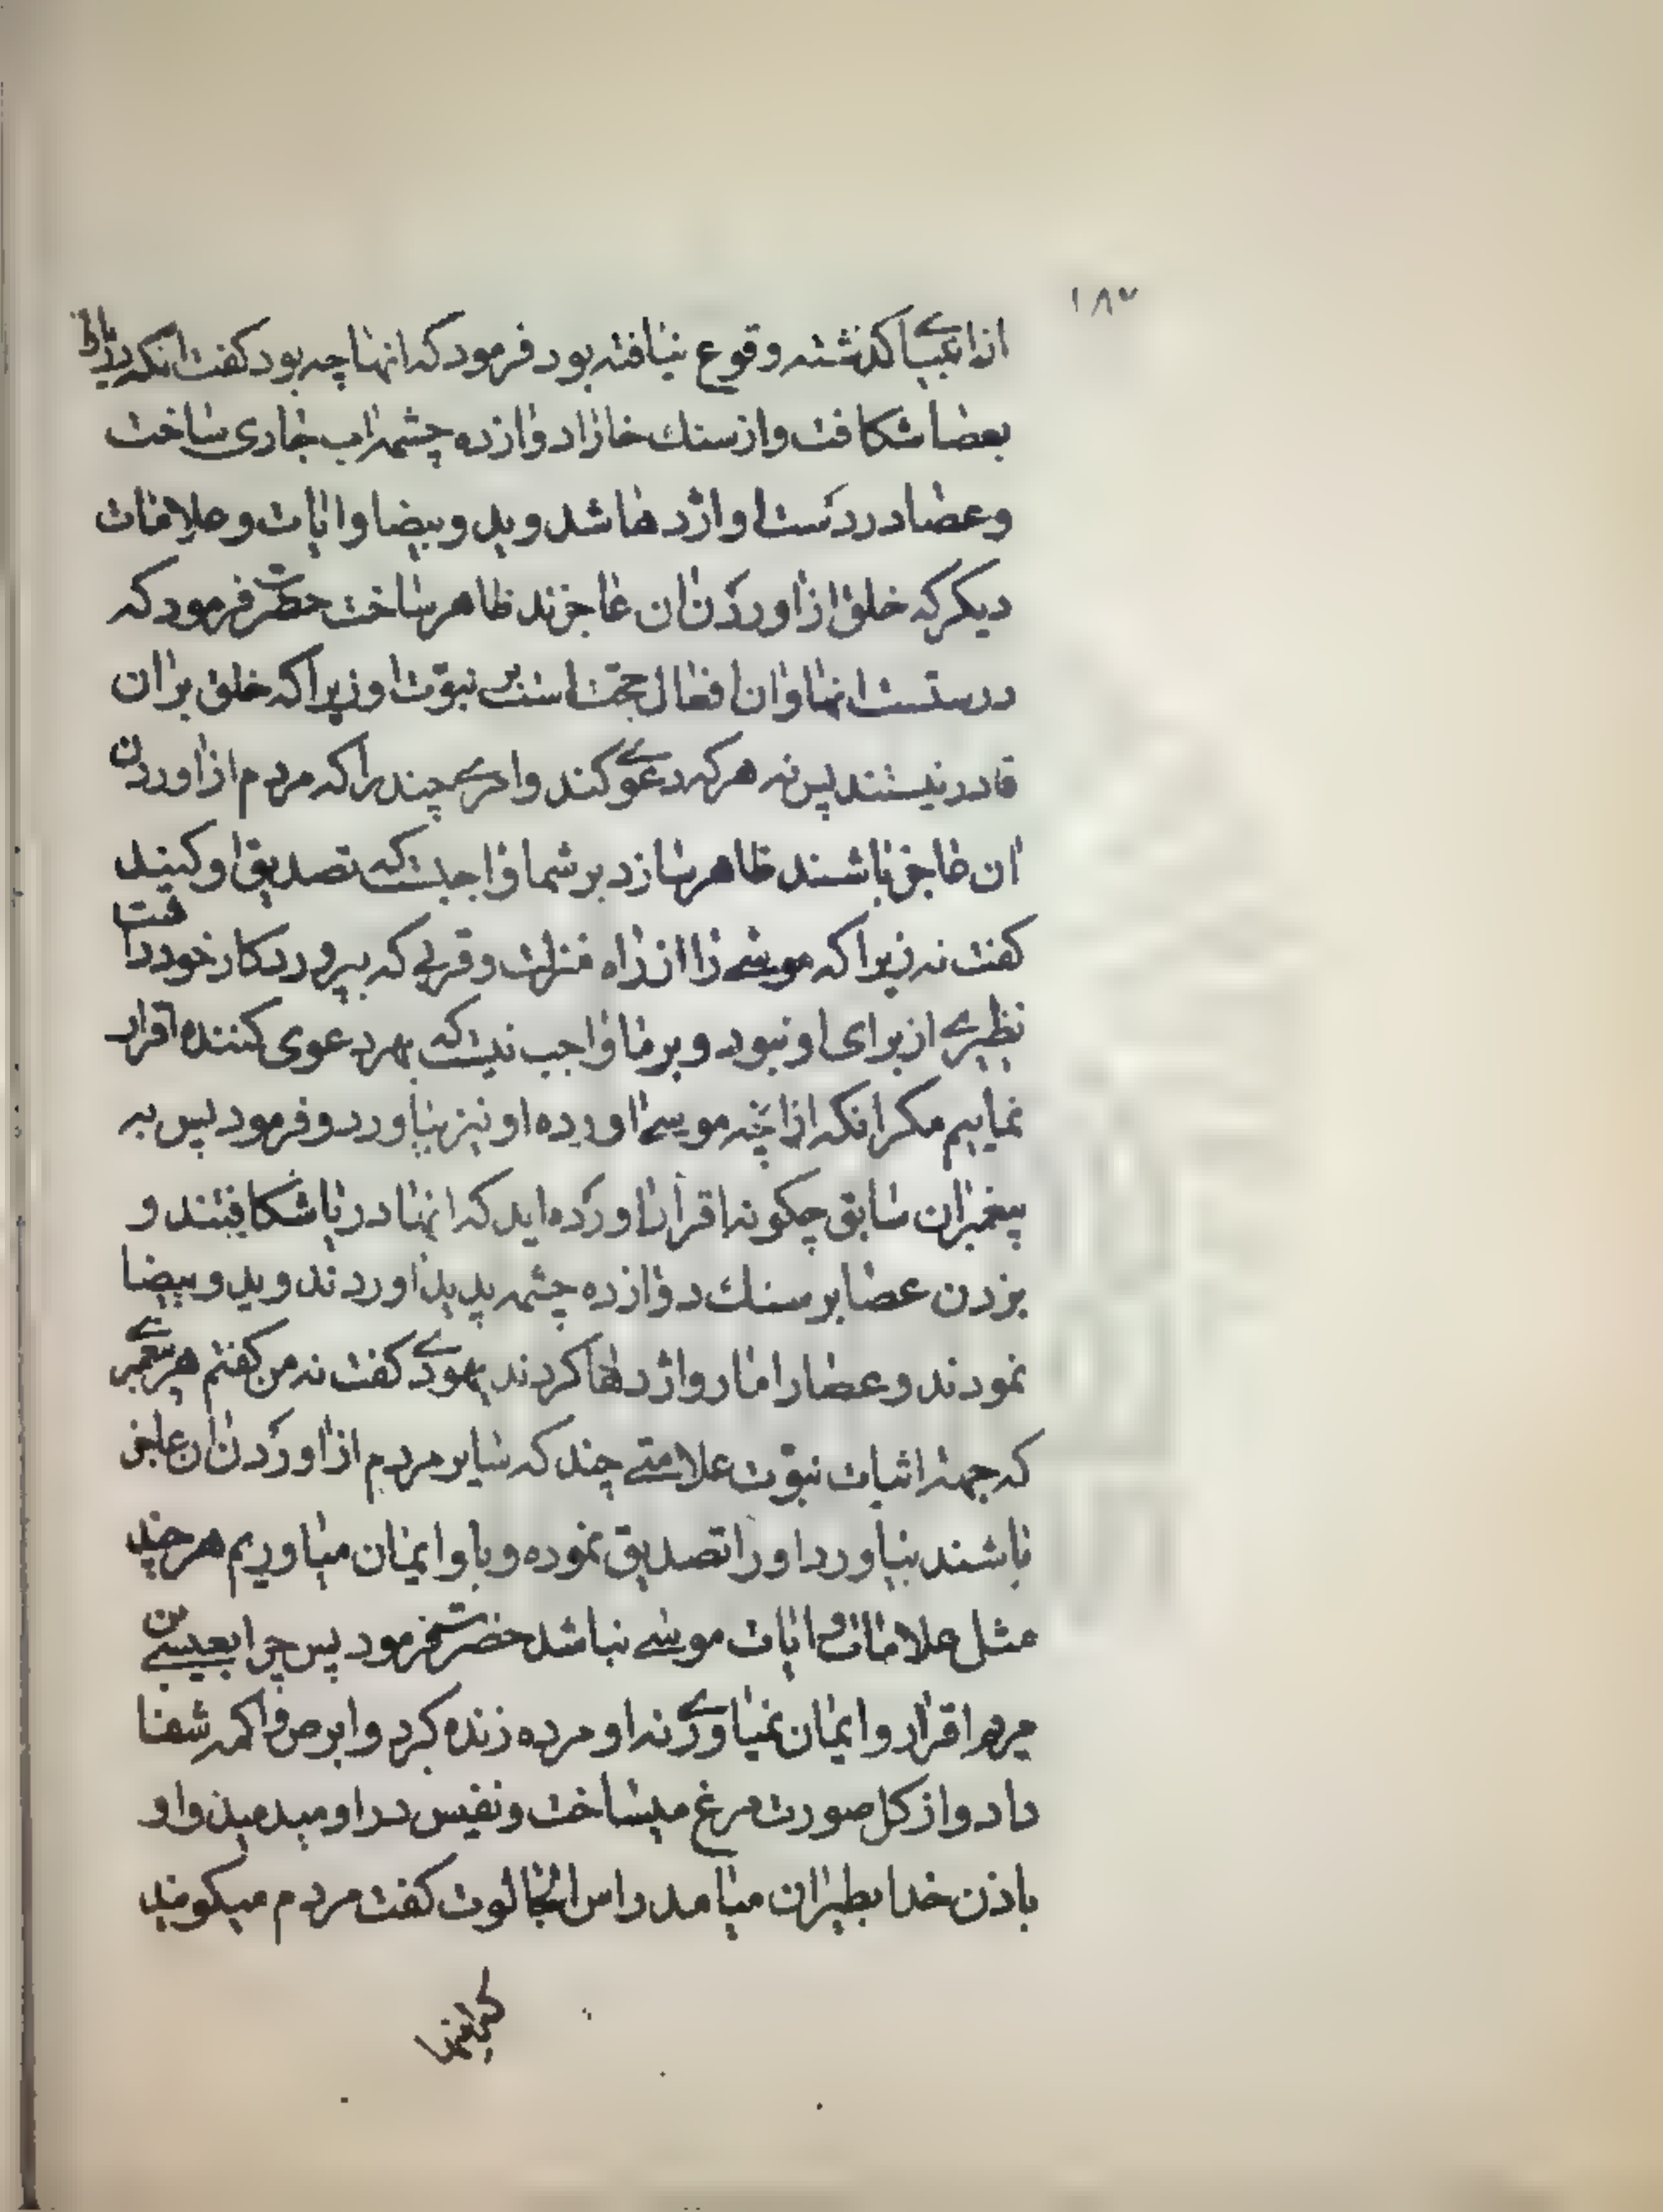 ١٨٧
از انبیای کذشته وقوع نیافته بود فرمود که انها چه بود کفت انکه دریا را
بعصا شکافت و از سنك خارا دوازده چشمه اب جاری ساخت
و عصا در دست او اژدها شد و ید و بیضا و ایات و علامات
دیکر که خلق از اوردن ان عاجزند ظاهر ساخت حضرت فرمود که
درستست اینها و ان افعال حجت است بر نبوّت او زیرا که خلق بر ان
قادر نیستند پس نه هر که دعوی کند و امری چند را که مردم از اوردن
ان عاجز باشند ظاهر سازد بر شما واجبست که تصدیق او کنید
کفت نه زیرا که موسی را از راه منزلت و قربی که بپروردکار خود داشت
نظیری از برای او نبود و بر ما واجب نیست که بهر دعوی کننده اقرار
نماییم مکر انکه از انچه موسی اورده او نیز بیاورد و فرمود پس به
پیغمبران سابق چکونه اقرار اورده اید که اینها دریا شکافتند و
بزدن عصا بر سنك دوازده چشمه پدید اوردند و ید و بیضا
نمودند و عصا را مار و اژدها کردند یهودی کفت نه من کفتم هر پیغمبری
که جهة اثبات نبوّت علامتی چند که سایر مردم از اوردن ان عاجز
باشند بیاورد او را تصدیق نموده و باو ایمان میاوریم هر چند
مثل علامات و ایات موسی نباشد حضرت فرمود پس چرا بعیسی بن
مریم اقرار و ایمان نمیاوری نه او مرده زنده کرد و ابرص و اکمه شفا
داد و از کل صورت مرغ میساخت و نفیس در او میدمید و او
باذن خدا بطیران میامد راس الجالوت کفت مردم میکویند
که اینها